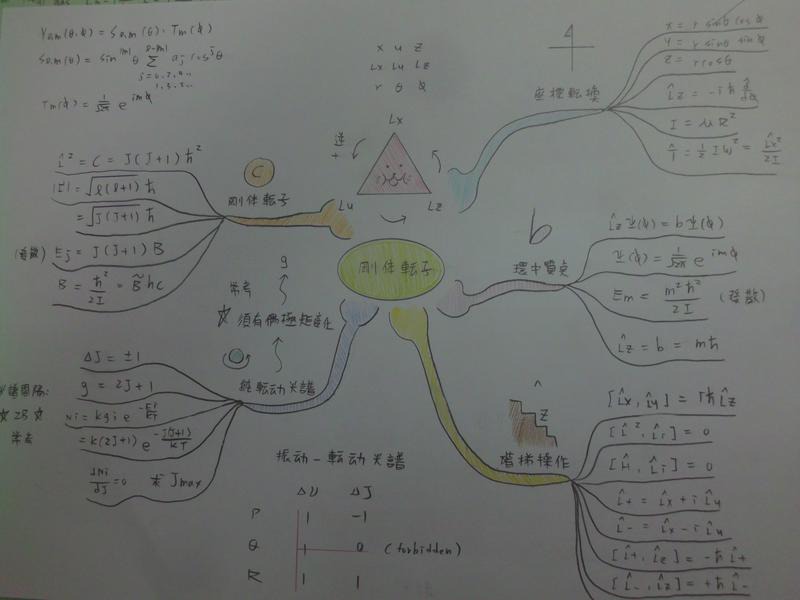 Yℓm(θ,φ) = Sℓm(θ)·Tm(φ)
Sℓm(θ) = sin^|m| θ Σ aj cos^j θ
Tm(φ) = 1/√2π e^imφ
x y z
Lx Ly Lz
r θ φ
Lx
逆
+
Ly
Lz
座標転換
x = r sinθ cosφ
y = r sinθ sinφ
z = r cosθ
L̂z = -iħ ∂/∂φ
I = μR²
T̂ = 1/2 Iω² = L̂z²/2I
C
剛体転子
L̂² = C = J(J+1)ħ²
|L| = √ℓ(ℓ+1) ħ
= √J(J+1) ħ
EJ = J(J+1) B
B = ħ²/2I = B̃hc
剛体転子
b
環中質点
L̂z Φ(φ) = bΦ(φ)
Φ(φ) = 1/√2π e^imφ
Em = m²ħ²/2I
L̂z = b = mħ
g
常考
須有偶極矩変化
純転动光譜
ΔJ = ±1
g = 2J+1
Ni = kgi e^-Ei/kT
= k(2J+1) e^-J(J+1)/kT
dNi/dJ = 0 求 Jmax
2B
常考
L̂z
階梯操作
[L̂x, L̂y] = iħL̂z
[L̂², L̂i] = 0
[Ĥ, L̂i] = 0
L̂+ = L̂x + i L̂y
L̂- = L̂x - i L̂y
[L̂+, L̂z] = -ħL̂+
[L̂-, L̂z] = +ħL̂-
振动-転动光譜
Δν ΔJ
P 1 -1
Q 1 0 (forbidden)
R 1 1